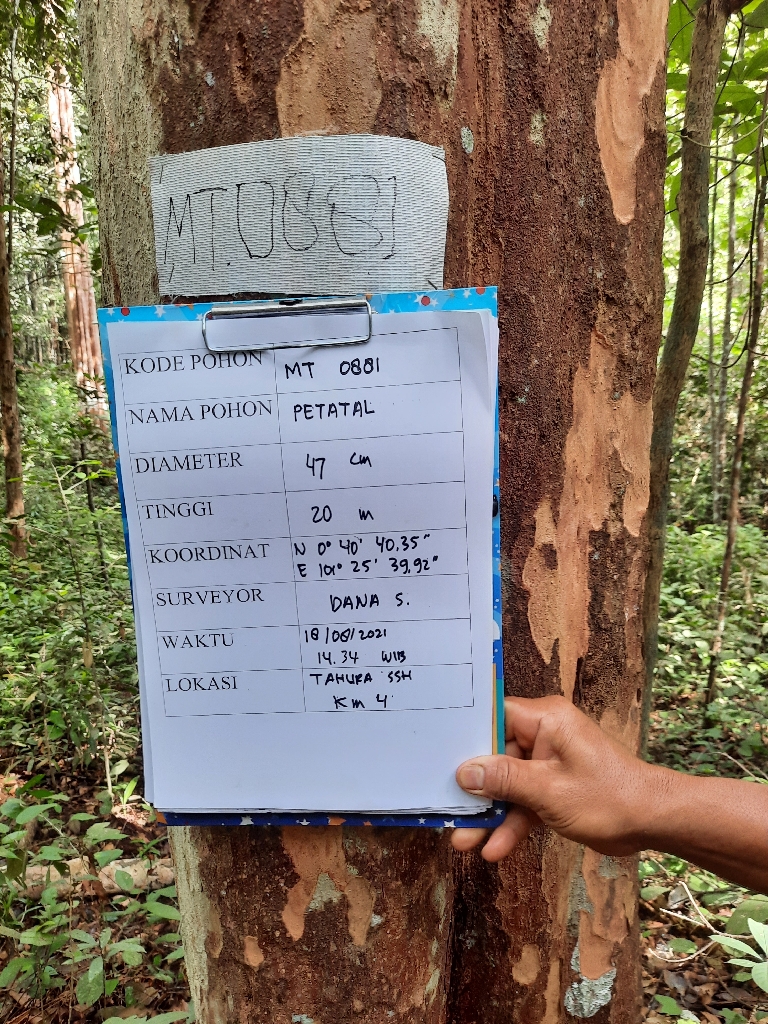 MT.0881
KODE POHON MT 0881
NAMA POHON PETATAL
DIAMETER 47 cm
TINGGI 20 m
KOORDINAT N 0° 40' 40.35"
E 101° 25' 39.92"
SURVEYOR DANA S.
WAKTU 18/08/2021
14.34 WIB
LOKASI TAHURA SSH
Km 4